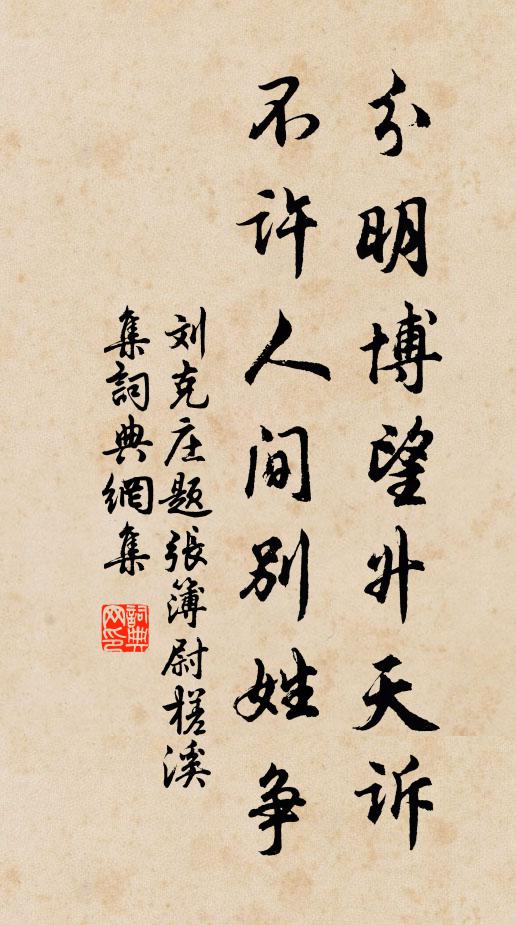 分明博望升天诉
不许人间别姓争
刘克庄题張簿尉槎溪
集詞典網集
詞典网印